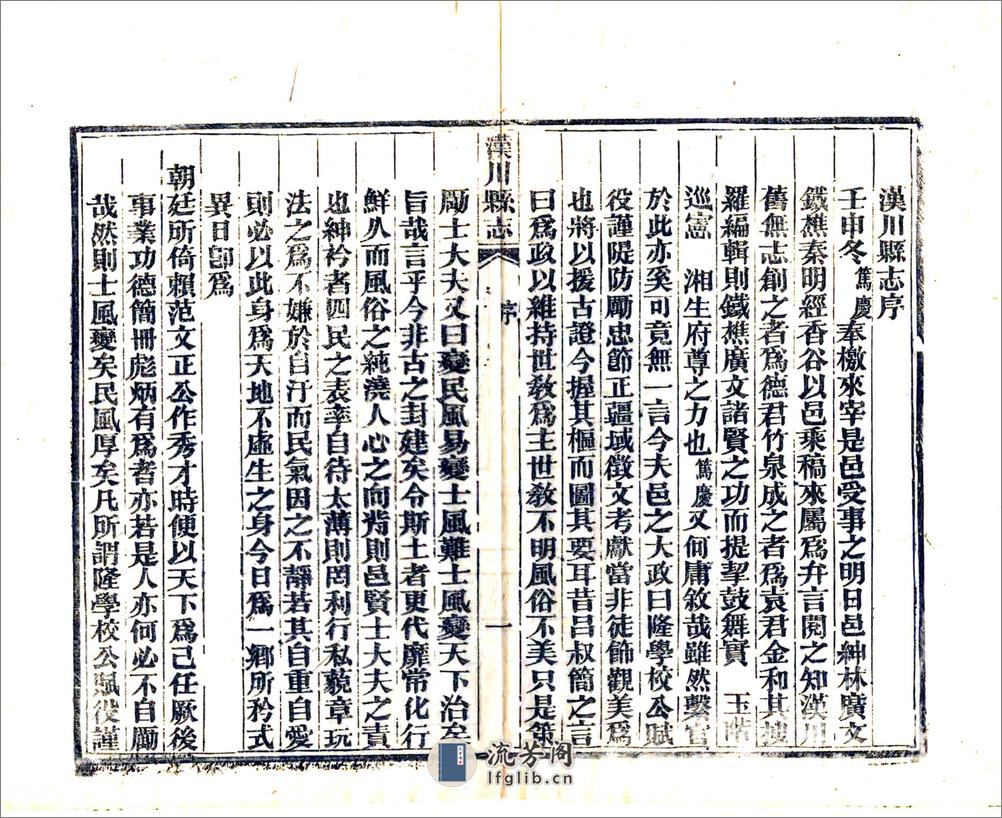 漢川縣志序
壬申冬篤慶奉檄來宰是邑受事之明日邑紳林廣文
鐵樵秦明經香谷以邑乘稿來屬爲弁言閱之知漢川
舊無志創之者爲德君竹泉成之者爲袁君金和其搜
羅編輯則鐵樵廣文諸賢之功而提挈鼓舞實 玉階
巡憲 湘生府尊之力也篤慶又何庸敘哉雖然繫官
於此亦奚可竟無一言今夫邑之大政曰隆學校公賦
役謹隄防勵忠節正疆域徵文考獻當非徒飾觀美爲
也將以援古證今握其樞而圖其要耳昔呂叔簡之言
曰爲政以維持世敎爲主世敎不明風俗不美只是策
漢川縣志
序
一
勵士大夫又曰變民風易變士風難士風變天下治矣
旨哉言乎今非古之封建矣令斯土者更代靡常化行
鮮久而風俗之純澆人心之向背則邑賢士大夫之責
也紳衿者四民之表率自待太薄則罔利行私藐章玩
法之爲不嫌於自汙而民氣因之不靜若其自重自愛
則必以此身爲天地不虛生之身今日爲一鄉所矜式
異日卽爲
朝廷所倚賴范文正公作秀才時便以天下爲己任厥後
事業功德簡冊彪炳有爲者亦若是人亦何必不自勵
哉然則士風變矣民風厚矣凡所謂隆學校公賦役謹
流芳閣
lfglib.cn